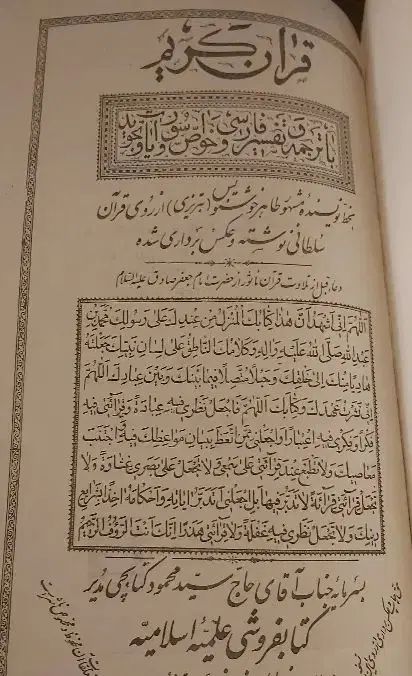 قرآن کریم
با ترجمه و تفسیر فارسی و خواص سور و آیات و تجوید
بخط نویسنده مشهور طاهر خوشنویس (تبریزی) از روی قرآن
سلطانی نوشته و عکس برداری شده
دعا قبل از تلاوت قرآن مأثور از حضرت امام جعفر صادق علیه السلام
اَللّهُمَّ اِنّی اَشْهَدُ اَنَّ هذا کِتابُکَ الْمُنْزَلُ مِنْ عِنْدِکَ عَلی رَسُولِکَ مُحَمَّدِ بْنِ
عَبْدِ اللهِ صَلَّی اللهُ عَلَیْهِ وَ الِهِ وَ کَلامُکَ النّاطِقُ عَلی لِسانِ نَبِیِّکَ جَعَلْتَهُ
هادِیاً مِنْکَ اِلی خَلْقِکَ وَ حَبْلاً مُتَّصِلاً فیما بَیْنَکَ وَ بَیْنَ عِبادِکَ اَللّهُمَّ
اِنّی نَشَرْتُ عَهْدَکَ وَ کِتابَکَ اَللّهُمَّ فَاجْعَلْ نَظَری فیهِ عِبادَةً وَ قِرائَتی فیهِ
فِکْراً وَ فِکْری فیهِ اِعْتِباراً وَ اجْعَلْنی مِمَّنِ اتَّعَظَ بِبَیانِ مَواعِظِکَ فیهِ وَ اجْتَنَبَ
مَعاصیکَ وَ لا تَطْبَعْ عِنْدَ قِرائَتی عَلی سَمْعی وَ لا تَجْعَلْ عَلی بَصَری غِشاوَةً وَ لا
تَجْعَلْ قِرائَتی قِرائَةً لا تَدَبُّرَ فیها بَلِ اجْعَلْنی اَتَدَبَّرُ ایاتِهِ وَ اَحْکامَهُ اخِذاً بِشَرایِعِ
دینِکَ وَ لا تَجْعَلْ نَظَری فیهِ غَفْلَةً وَ لا قِرائَتی هَذَراً اِنَّکَ اَنْتَ الرَّؤُفُ الرَّحیمُ
بسرمایه جناب آقای حاج سید محمود کتابچی مدیر
کتابفروشی علمیه اسلامیه